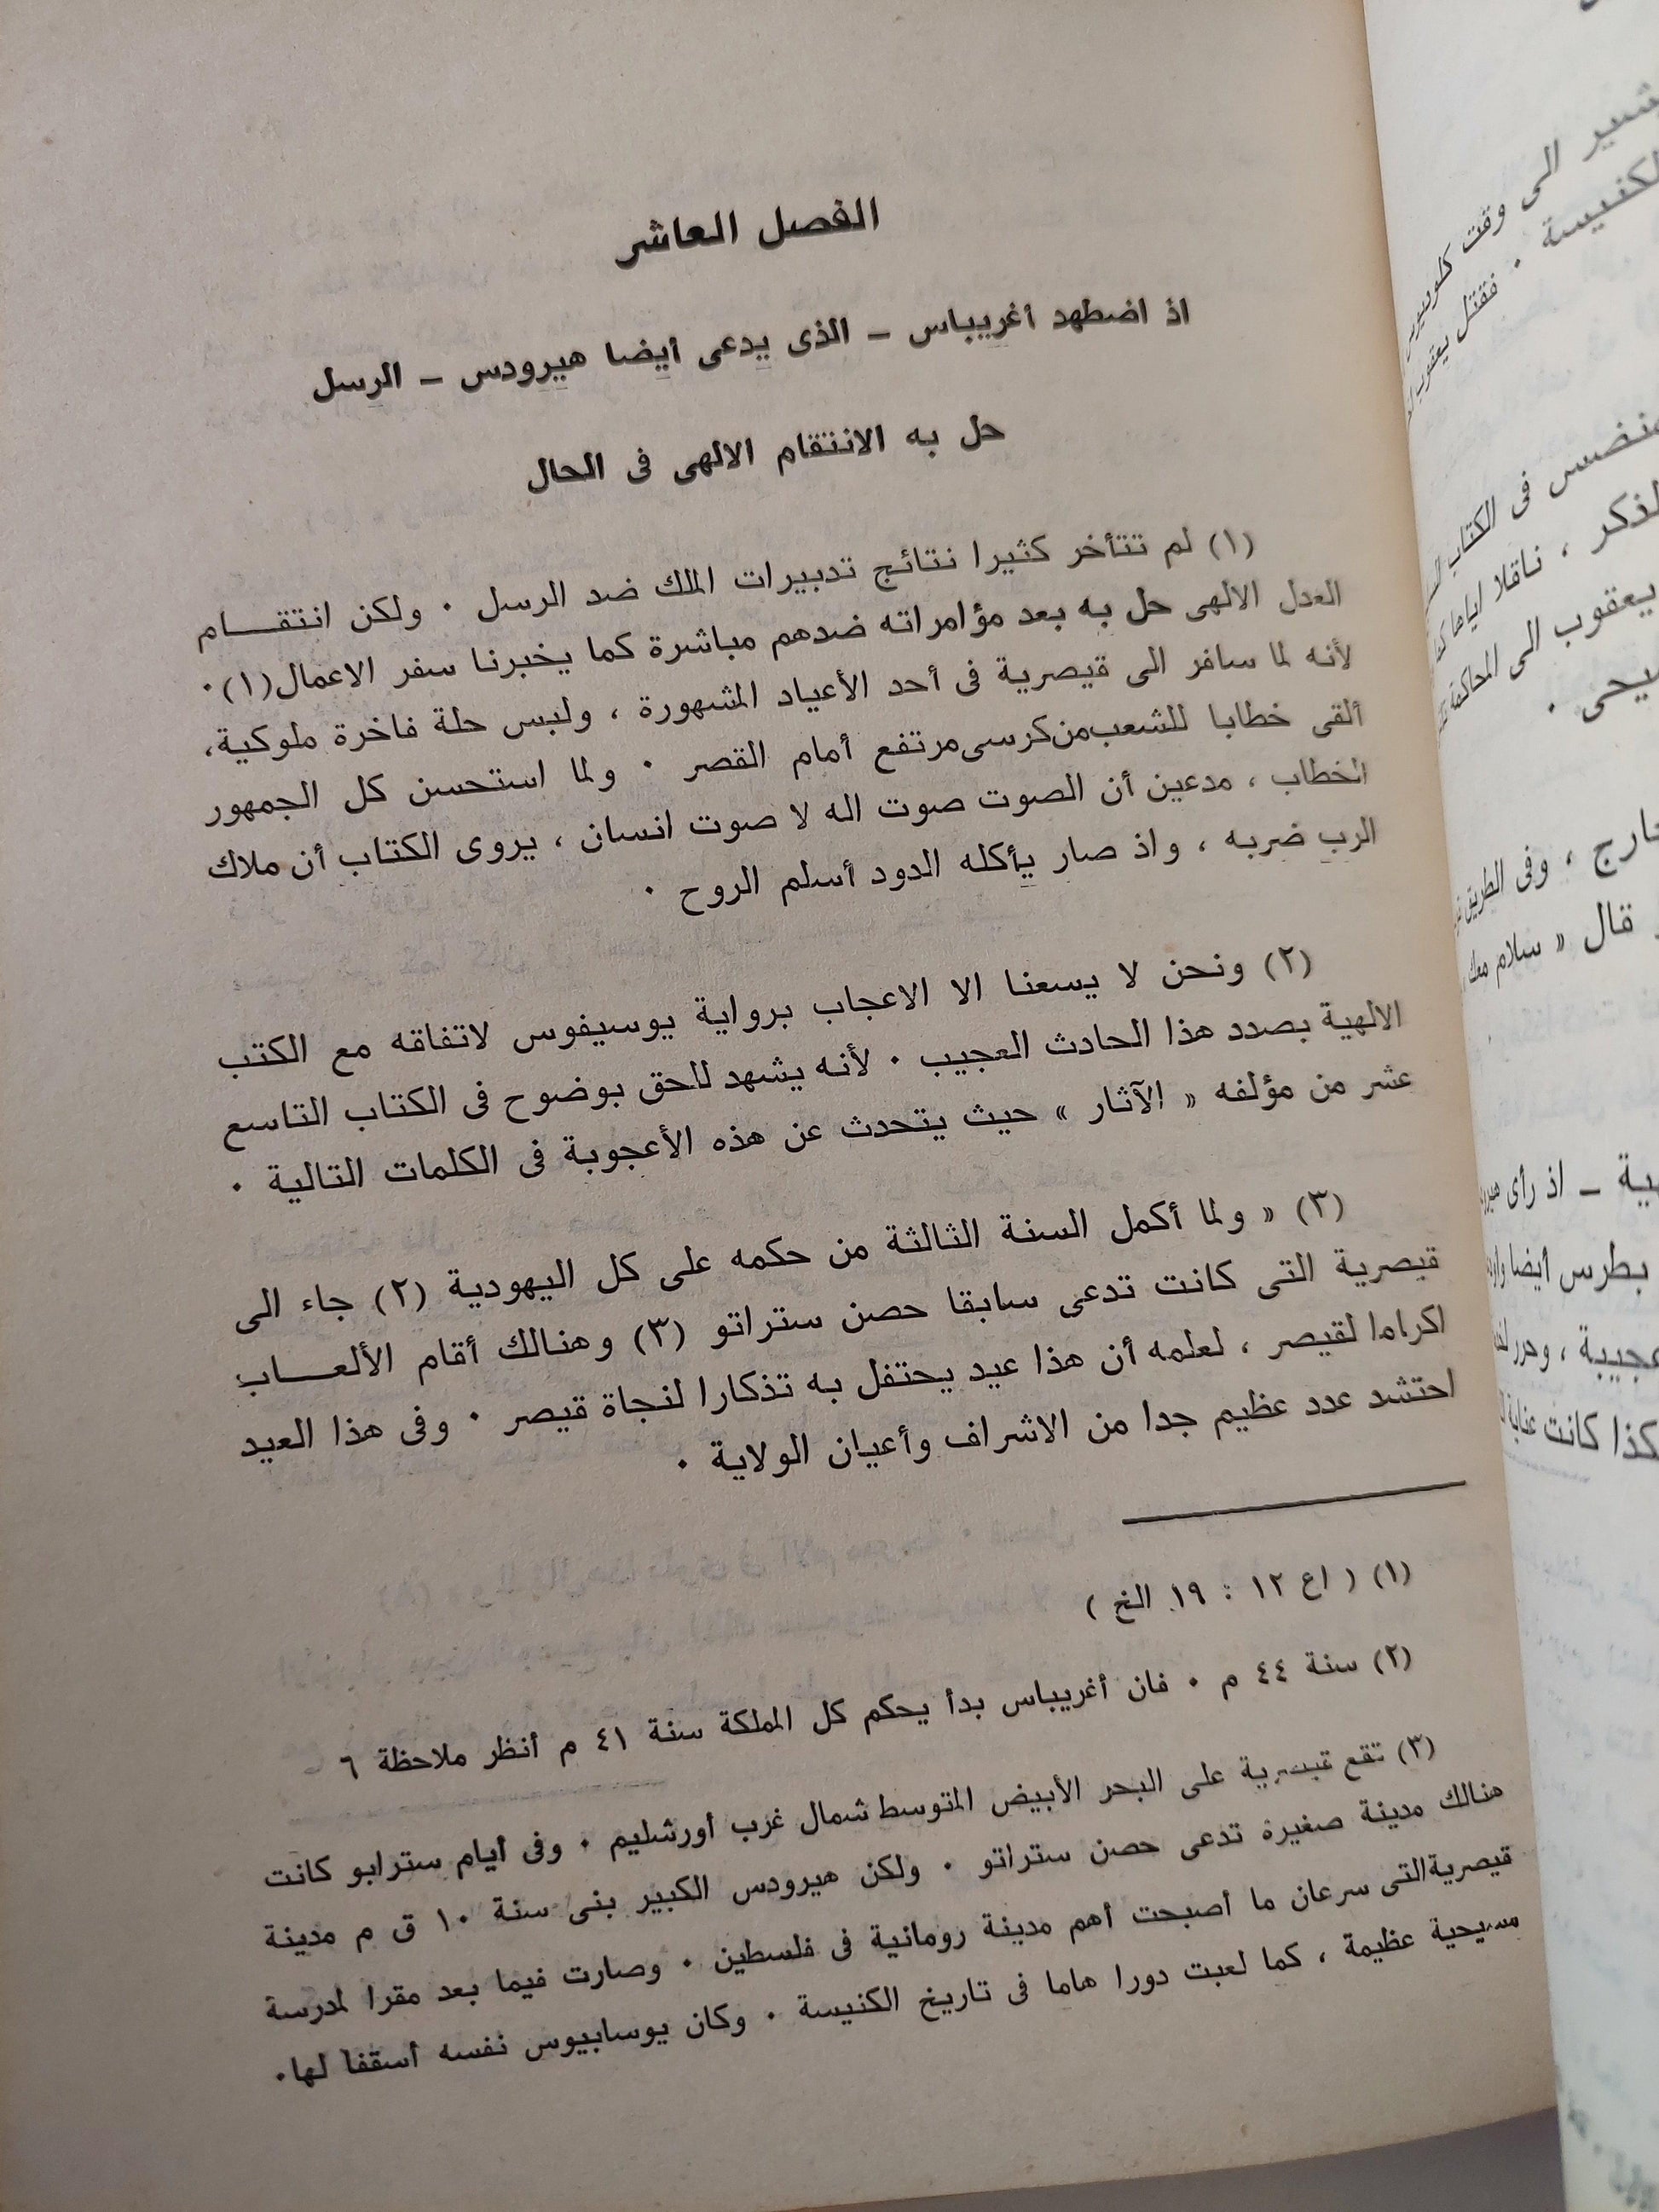 الفصل العاشر
اذ اضطهد أغريباس – الذى يدعى أيضا هيرودس – الرسل
حل به الانتقام الالهى فى الحال
(١) لم تتأخر كثيرا نتائج تدبيرات الملك ضد الرسل . ولكن انتقـــام
العدل الالهى حل به بعد مؤامراته ضدهم مباشرة كما يخبرنا سفر الاعمال(١).
لأنه لما سافر الى قيصرية فى أحد الأعياد المشهورة ، ولبس حلة فاخرة ملوكية،
ألقى خطابا للشعب من كرسى مرتفع أمام القصر . ولما استحسن كل الجمهور
الخطاب ، مدعين أن الصوت صوت اله لا صوت انسان ، يروى الكتاب أن ملاك
الرب ضربه ، واذ صار يأكله الدود أسلم الروح .
(٢) ونحن لا يسعنا الا الاعجاب برواية يوسيفوس لاتفاقه مع الكتب
الالهية بصدد هذا الحادث العجيب . لأنه يشهد للحق بوضوح فى الكتاب التاسع
عشر من مؤلفه « الآثار » حيث يتحدث عن هذه الأعجوبة فى الكلمات التالية .
(٣) « ولما أكمل السنة الثالثة من حكمه على كل اليهودية (٢) جاء الى
قيصرية التى كانت تدعى سابقا حصن ستراتو (٣) وهنالك أقام الألعـــاب
اكراما لقيصر ، لعلمه أن هذا عيد يحتفل به تذكارا لنجاة قيصر . وفى هذا العيد
احتشد عدد عظيم جدا من الاشراف وأعيان الولاية .
(١) ( اع ١٢ : ١٩ الخ )
(٢) سنة ٤٤ م . فان أغريباس بدأ يحكم كل المملكة سنة ٤١ م أنظر ملاحظة ٦
(٣) تقع قيصرية على البحر الأبيض المتوسط شمال غرب أورشليم . وفى أيام سترابو كانت
هنالك مدينة صغيرة تدعى حصن ستراتو . ولكن هيرودس الكبير بنى سنة ١٠ ق م مدينة
قيصرية التى سرعان ما أصبحت أهم مدينة رومانية فى فلسطين . وصارت فيما بعد مقرا لمدرسة
مسيحية عظيمة ، كما لعبت دورا هاما فى تاريخ الكنيسة . وكان يوسابيوس نفسه أسقفا لها.
الى وقت
فقتل
فى الكتاب
ناقلا اياها
يعقوب الى المحاكمة
، وفى الطريق
قال « سلام معك
– اذ رأى
بطرس أيضا
كانت عناية